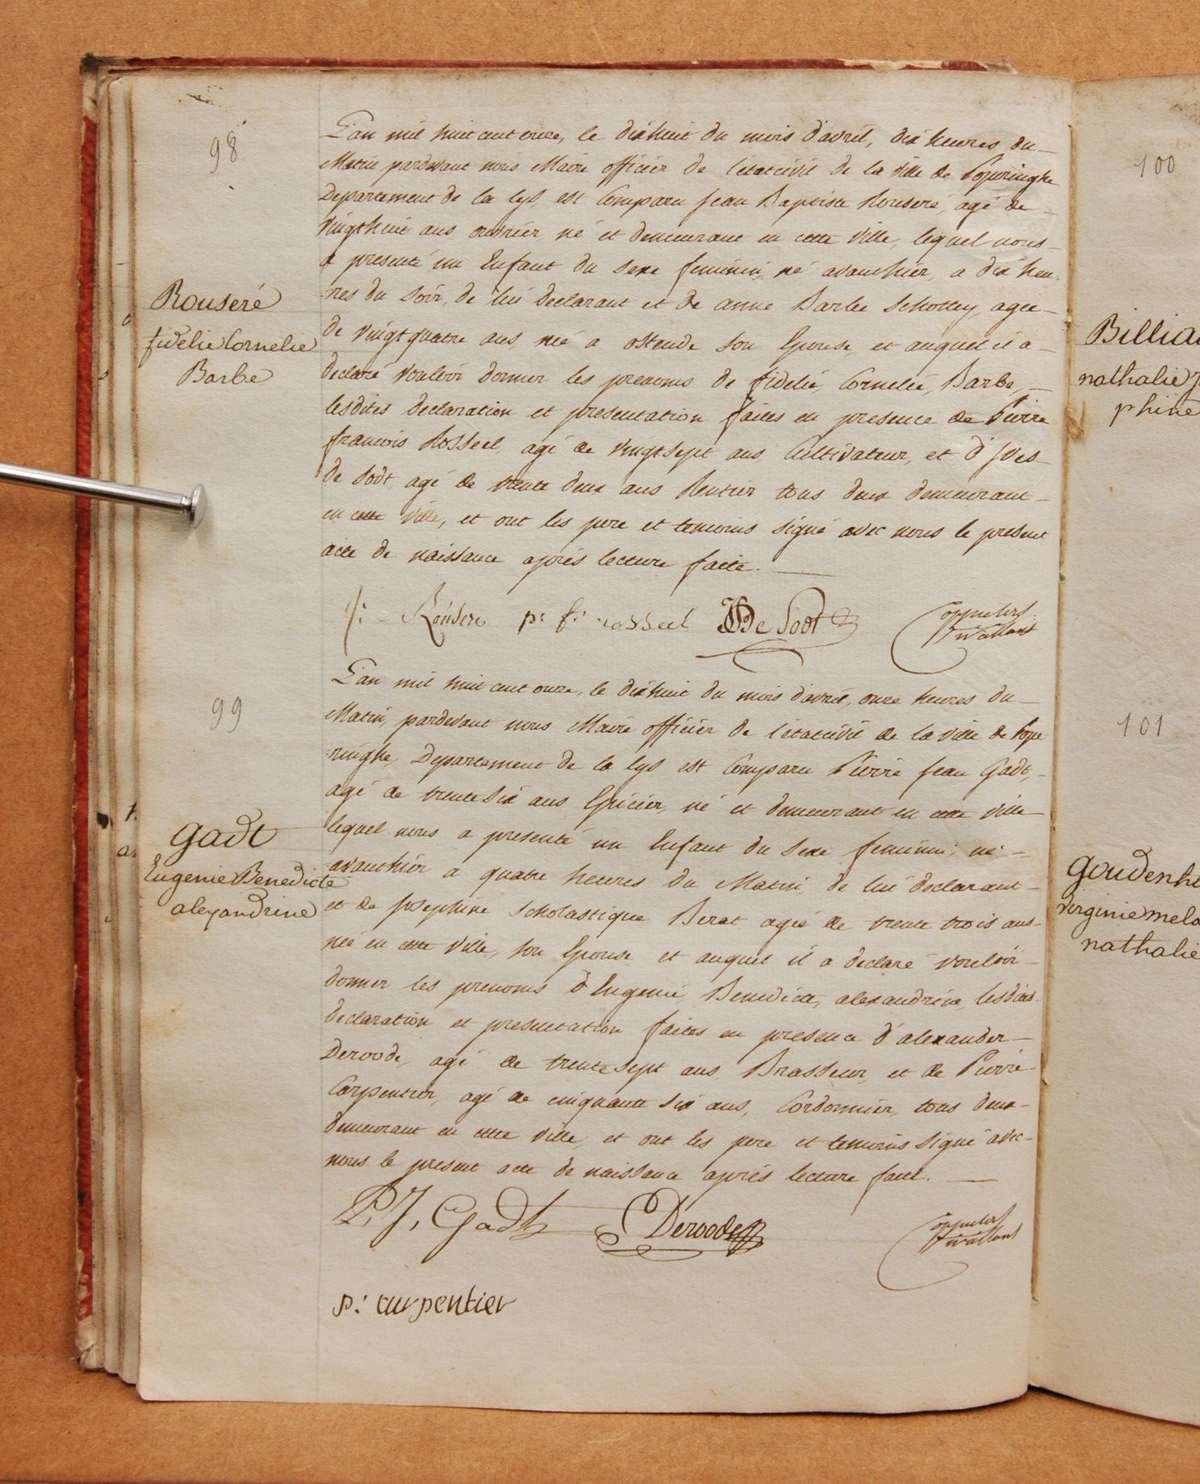 98
Rouseré
fidelie Cornelie
Barbe
L'an mil huit cent onze, le dix huit du mois d'avril, dix heures du
Matin pardevant nous Maire officier de l'état civil de la ville de Poperinghe
Departement de la Lys, est Comparu Jean Baptiste Rouseré, agé de
vingt huit ans ouvrier né et demeurant en cette ville, lequel nous
a presenté un Enfant du sexe feminin, né avanthier, a dix heu-
-res du soir, de lui declarant et de anne Barbe Scholley agée
de vingt quatre ans née a ostende son Epouse, et auquel il a
declaré vouloir donner les prenoms de fidelié, Cornelié, Barbe,
lesdites declaration et presentation faites en presence de Pierre
francois Rosseel, agé de vingt sept ans Cultivateur, et d'Yves
de Sodt agé de trente deux ans Rentier tous deux demeurant
en cette ville, et ont les pere et temoins signé avec nous le present
acte de naissance après lecture faite.
Rousere p: f: rosseel De Sodt
99
gadt
Eugenie Benedicte
alexandrine
L'an mil huit cent onze, le dix huit du mois d'avril, onze heures du
Matin, pardevant nous Maire officier de l'état civil de la ville de Pope
-ringhe, Departement de la Lys est Comparu Pierre Jean Gadt,
agé de trente six ans Epicier, né et demeurant en cette ville
lequel nous a presenté un Enfant du sexe feminin, né
avanthier a quatre heures du Matin, de lui declarant
et de Josephine Scholastique Berat agée de trente trois ans
née en cette ville, son Epouse et auquel il a declaré vouloir
donner les prenoms d'Eugenie Benedicte, alexandrine, lesdites
declaration et presentation faites en presence d'alexander
Deroode, agé de trente sept ans, Brasseur, et de Pierre
Carpentier, agé de cinquante six ans, Cordonnier, tous deux
demeurant en cette ville, et ont les pere et temoins signé avec
nous le present acte de naissance après lecture faite.
P. J. Gadt Deroode
p: carpentier
100
nathalie
phine
101
virginie
nathalie